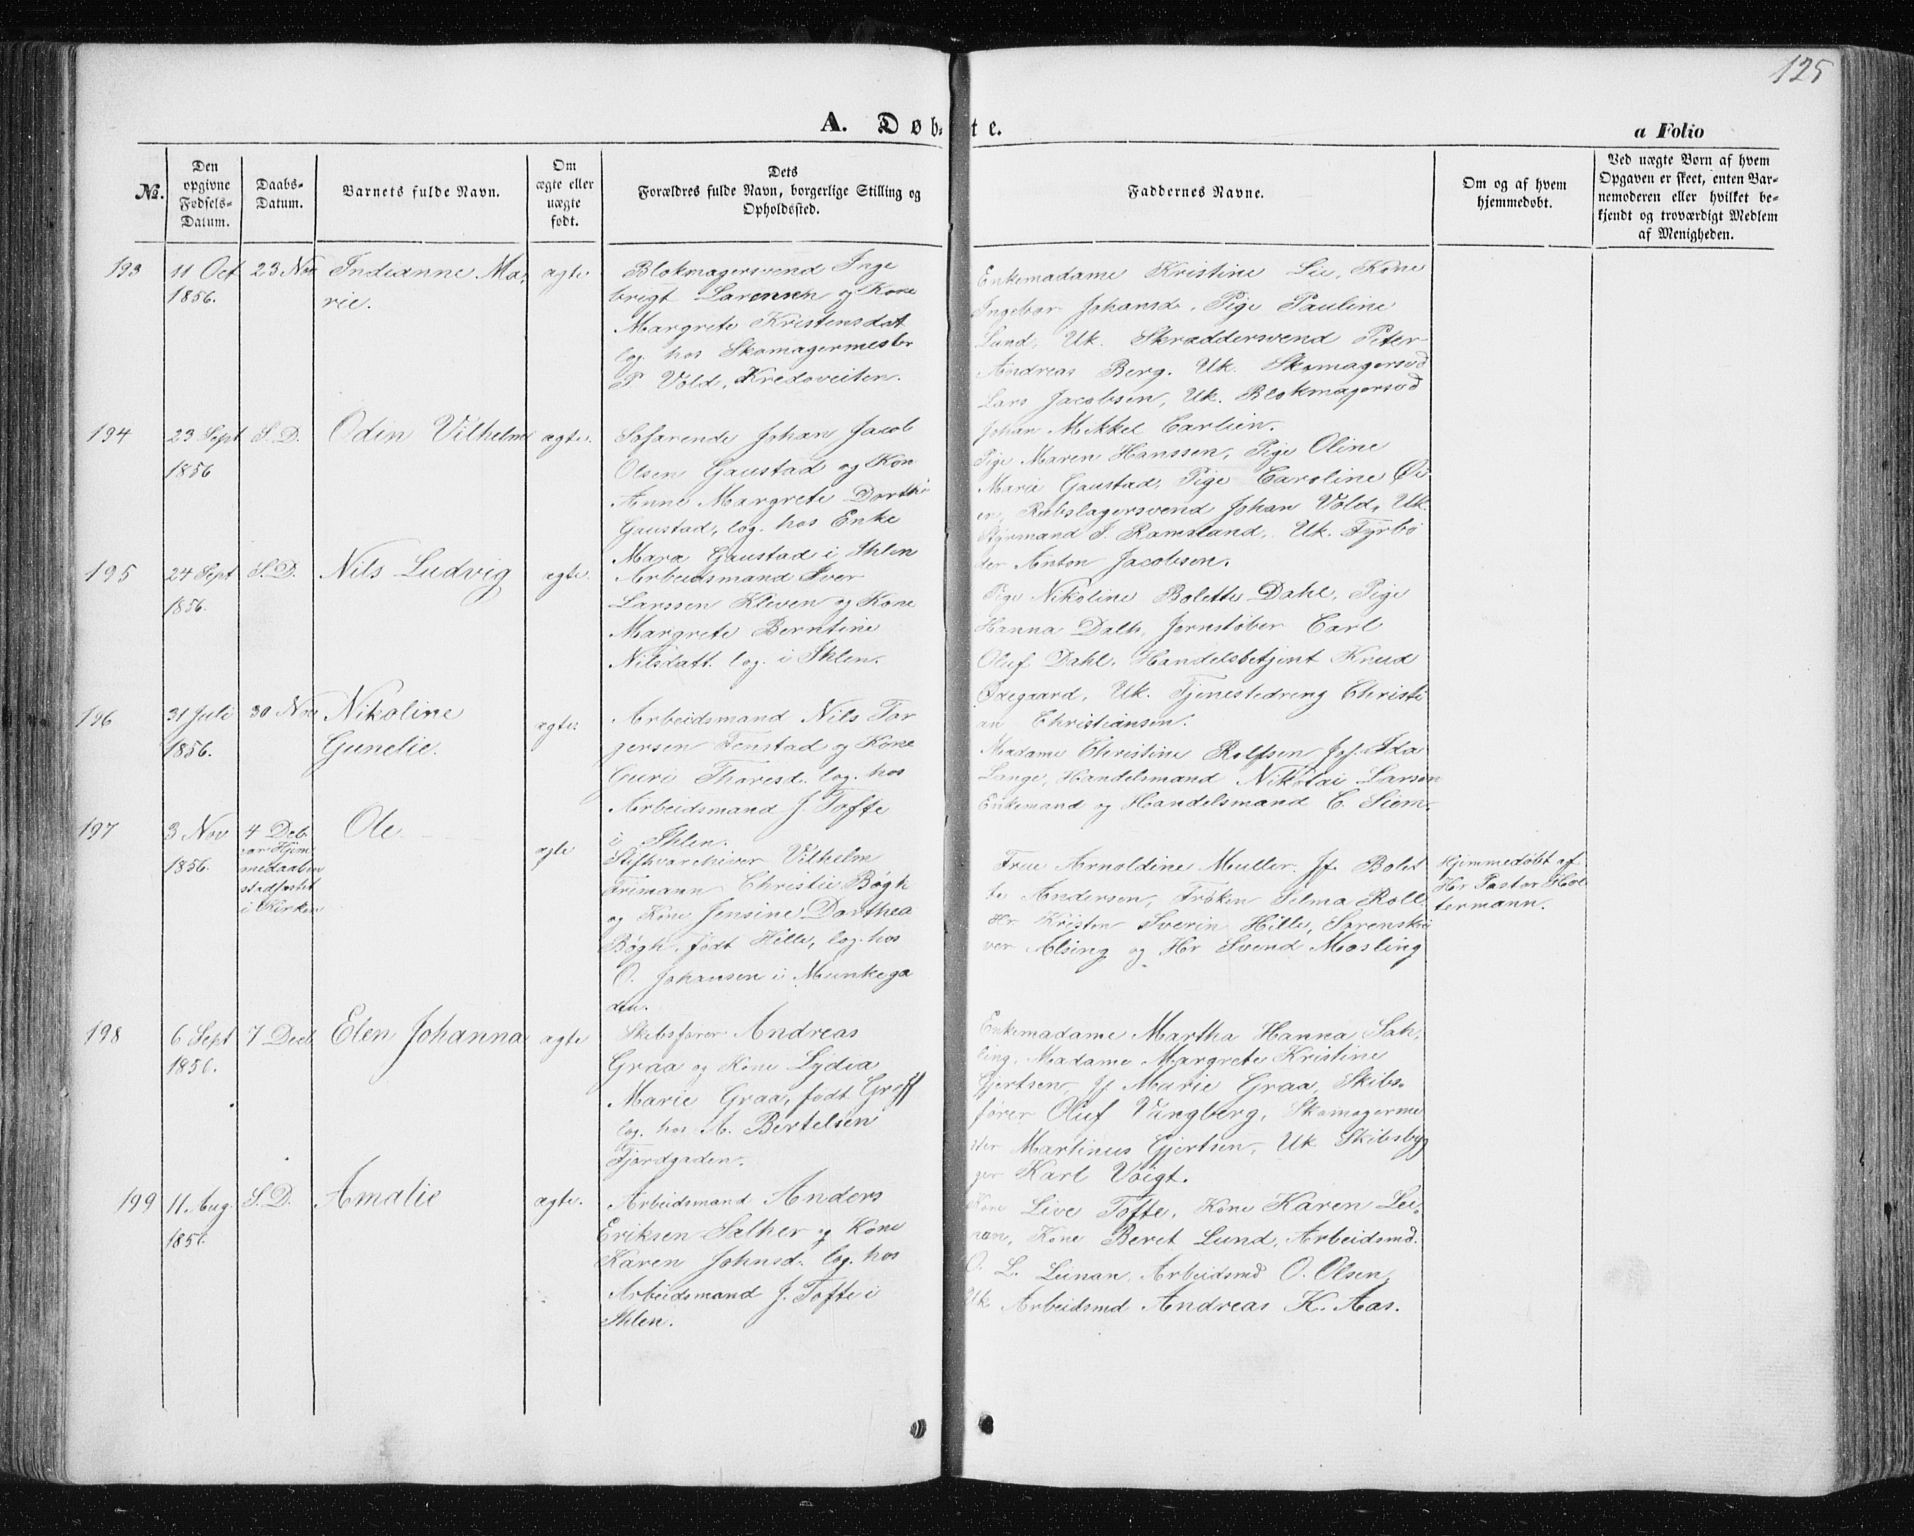 125
A. Døbte.
a Folio
№.
Den opgivne Fødsels-Datum.
Daabs-Datum.
Barnets fulde Navn.
Om ægte eller uægte født.
Dets Forældres fulde Navn, borgerlige Stilling og Opholdssted.
Faddernes Navne.
Om og af hvem hjemmedøbt.
Ved uægte Børn af hvem Opgaven er skeet, enten Barnemoderen eller hvilket bekjendt og troværdigt Medlem af Menigheden.
193
11 Oct
1856.
23 Nov
Indianne Ma-
rie.
ægte
Blokmagersvend Inge
brigt Larensen og Kone
Margrete Kristensdat
log. hos Skomagermester
P Vold, Kredoveiten.
Enkemadame Kristine Lie, Kone
Ingebor Johansd. Pige Pauline
Lund, Uk. Skræddersvend Peter
Andreas Berg. Uk. Skomagersvd
Lars Jacobsen, Uk. Blokmagersvd
Johan Mikkel Carlien.
194
23 Sept
1856
S.D.
Odin Vilhelm
ægte.
Søfarende Johan Jacob
Olsen Gaustad og Kon
Anne Margrete Dorthe
Gaustad, log. hos Enke
Mara Gaustad i Ihlen
Pige Maren Hanssen, Pige Oline
Marie Gaustad, Pige Caroline Øi
en, Rebslagersvend Johan Vold, Uk.
Styrmand J. Ramsland, Uk. Fyrbø
der Anton Jacobsen.
195
24 Sept
1856.
S.D.
Nils Ludvig
ægte.
Arbeidsmand Iver
Larssen Kleven og Kone
Margrete Berntine
Nilsdatt. log. i Ihlen.
Pige Nikoline Bolette Dahl, Pige
Hanna Dalh, Jernstøber Carl
Oluf Dahl. Handelsbetjent Knud
Ødegaard, Uk. Tjenestedreng Christi
an Christiansen.
196
31 Juli
1856.
30 Nov
Nikoline
Gunelie.
ægte.
Arbeidsmand Nils Tor
gersen Fenstad og Kone
Guri Thoresd. log. hos
Arbeidsmand J. Tofte
i Ihlen.
Madame Christine Rolfsen Jof. Ida
Lange, Handelsmand Nikolai Larsen
Enkemand og Handelsmand C. Siem.
197
3 Nov
1856.
4 Deb.
er Hjem-
medaaben
stadfæstet
i Kirken
Ole
ægte
Stiftsarchiver Vilhelm
Frimann Christie Bøgh
og Kone Jensine Dorthea
Bøgh, født Hille, log. hos
O. Johansen i Munkega
den.
Frue Arnoldine Muller. Jf. Bolet
te Andersen, Frøken Selma Roll
Hr. Kristen Sverin Hille, Sorenskri
ver Alsing og Hr Svend Mosling
Hjemmedøbt af
Hr Pastor Hol
termann.
198
6 Sept
1856.
7 Decb
Elen Johanna
ægte
Skibsfører Andreas
Graa og Kone Lydia
Marie Graa, født Graff
log. hos A. Bertelsen
Fjordgaden.
Enkemadame Martha Hanna Sah-
ling, Madame Margrete Kristine
Gjertsen Jf Marie Graa, Skibs-
fører Oluf Vingberg, Skomagerme
ster Martinus Gjertsen, Uk Skibsbyg
ger Karl Voigt.
199
11 Aug
1856.
S.D.
Amalie
ægte.
Arbeidsmand Anders
Eriksen Sather og Kone
Karen Johnsd. log. hos
Arbeidsmand J. Tofte i
Ihlen.
Kone Live Tofte, Kone Karen Lei-
nan, Kone Beret Lund, Arbeidsmd.
O. L. Leinan, Arbeidsmd O. Olsen,
Uk Arbeidsmd Andreas K. Aas.